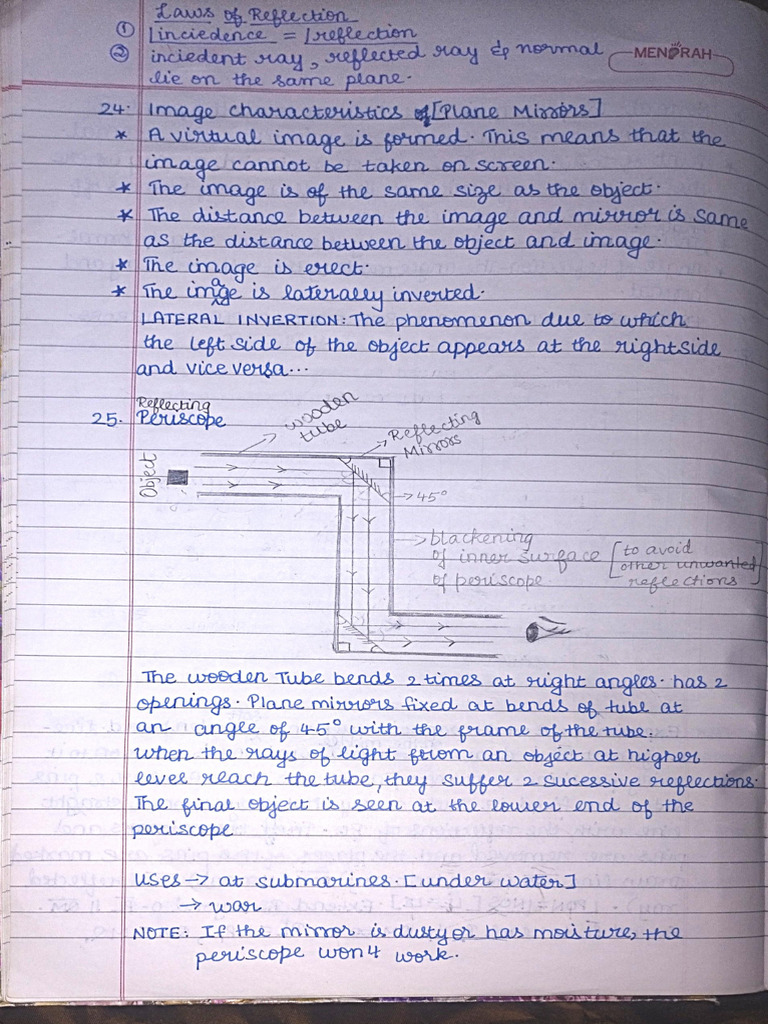 Laws of Reflection
① ∠inciedence = ∠reflection
② inciedent ray, reflected ray & normal
lie on the same plane.
MENORAH
24. Image characteristics of [Plane Mirrors]
* A virtual image is formed. This means that the
image cannot be taken on screen.
* The image is of the same size as the object.
* The distance between the image and mirror is same
as the distance between the object and image.
* The image is erect.
* The image is laterally inverted.
LATERAL INVERTION: The phenomenon due to which
the left side of the object appears at the rightside
and vice versa...
Reflecting
25. Periscope
wooden
tube
Reflecting
Mirrors
Object
45°
blackening
of inner surface [to avoid
of periscope other unwanted
reflections]
The wooden Tube bends 2 times at right angles. has 2
openings. Plane mirrors fixed at bends of tube at
an angle of 45° with the frame of the tube.
when the rays of light from an object at higher
level reach the tube, they suffer 2 sucessive reflections.
The final object is seen at the lower end of the
periscope
uses → at submarines. [under water]
→ war
NOTE: If the mirror is dusty or has moisture, the
periscope won4 work.